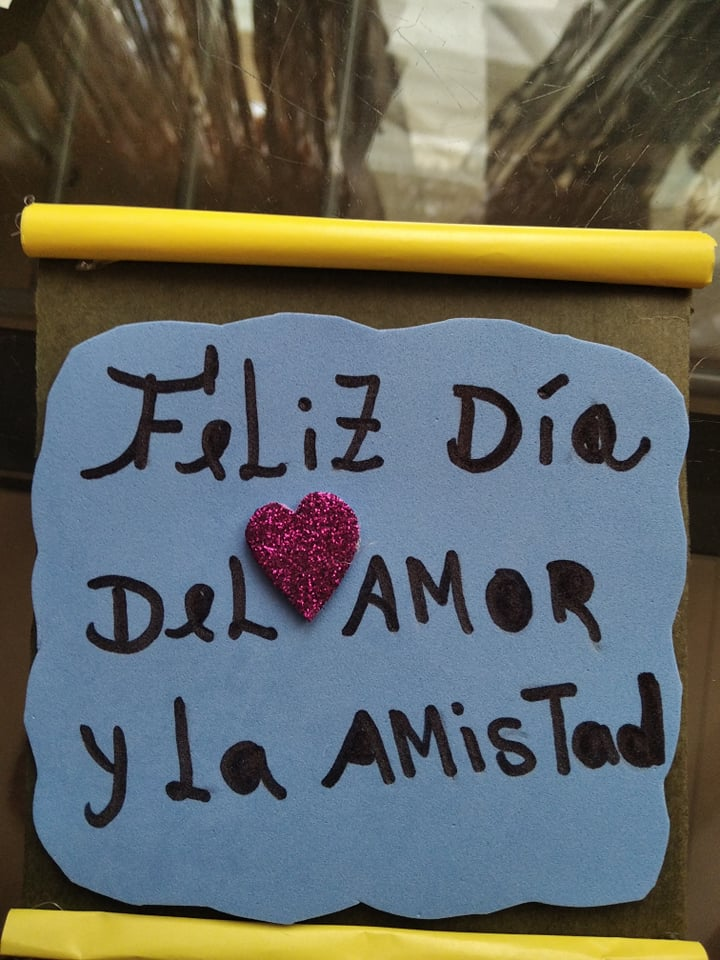 Feliz Día
Del AMOR
y la AMisTad